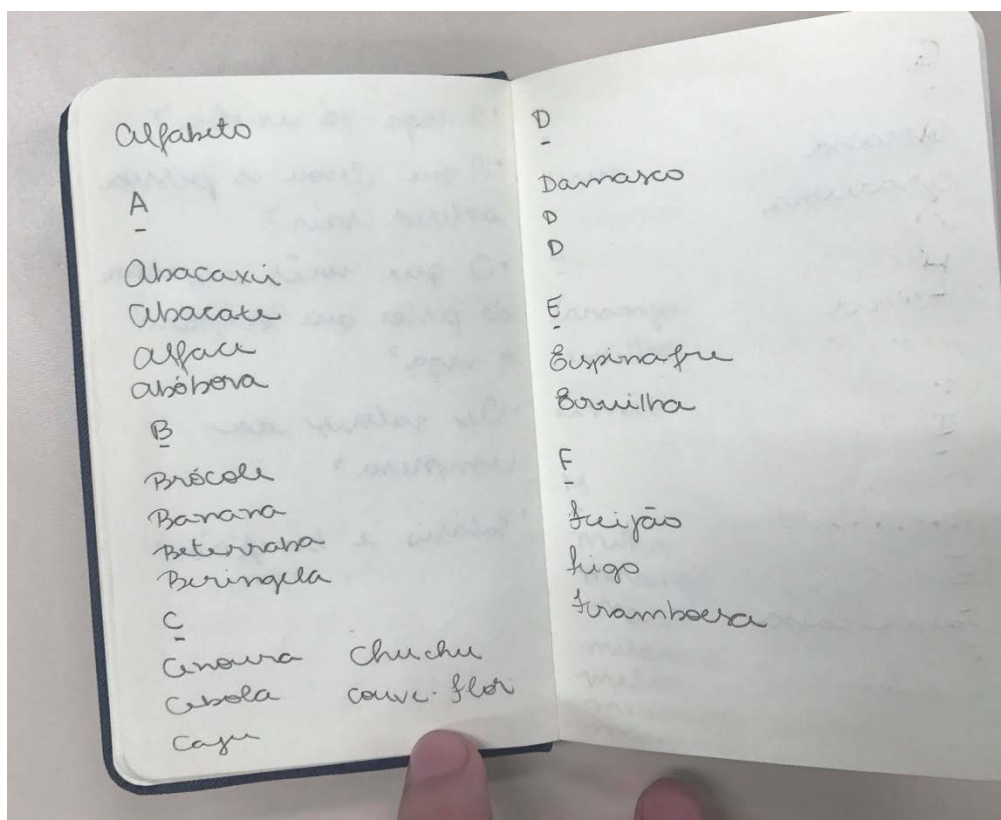 Alfabeto
A
Abacaxi
Abacate
Alface
Abóbora
B
Brócole
Banana
Beterraba
Beringela
C
Cenoura Chuchu
Cebola couve-flor
Caju
D
Damasco
D
D
E
Espinafre
Ervilha
F
Feijão
Figo
Framboesa